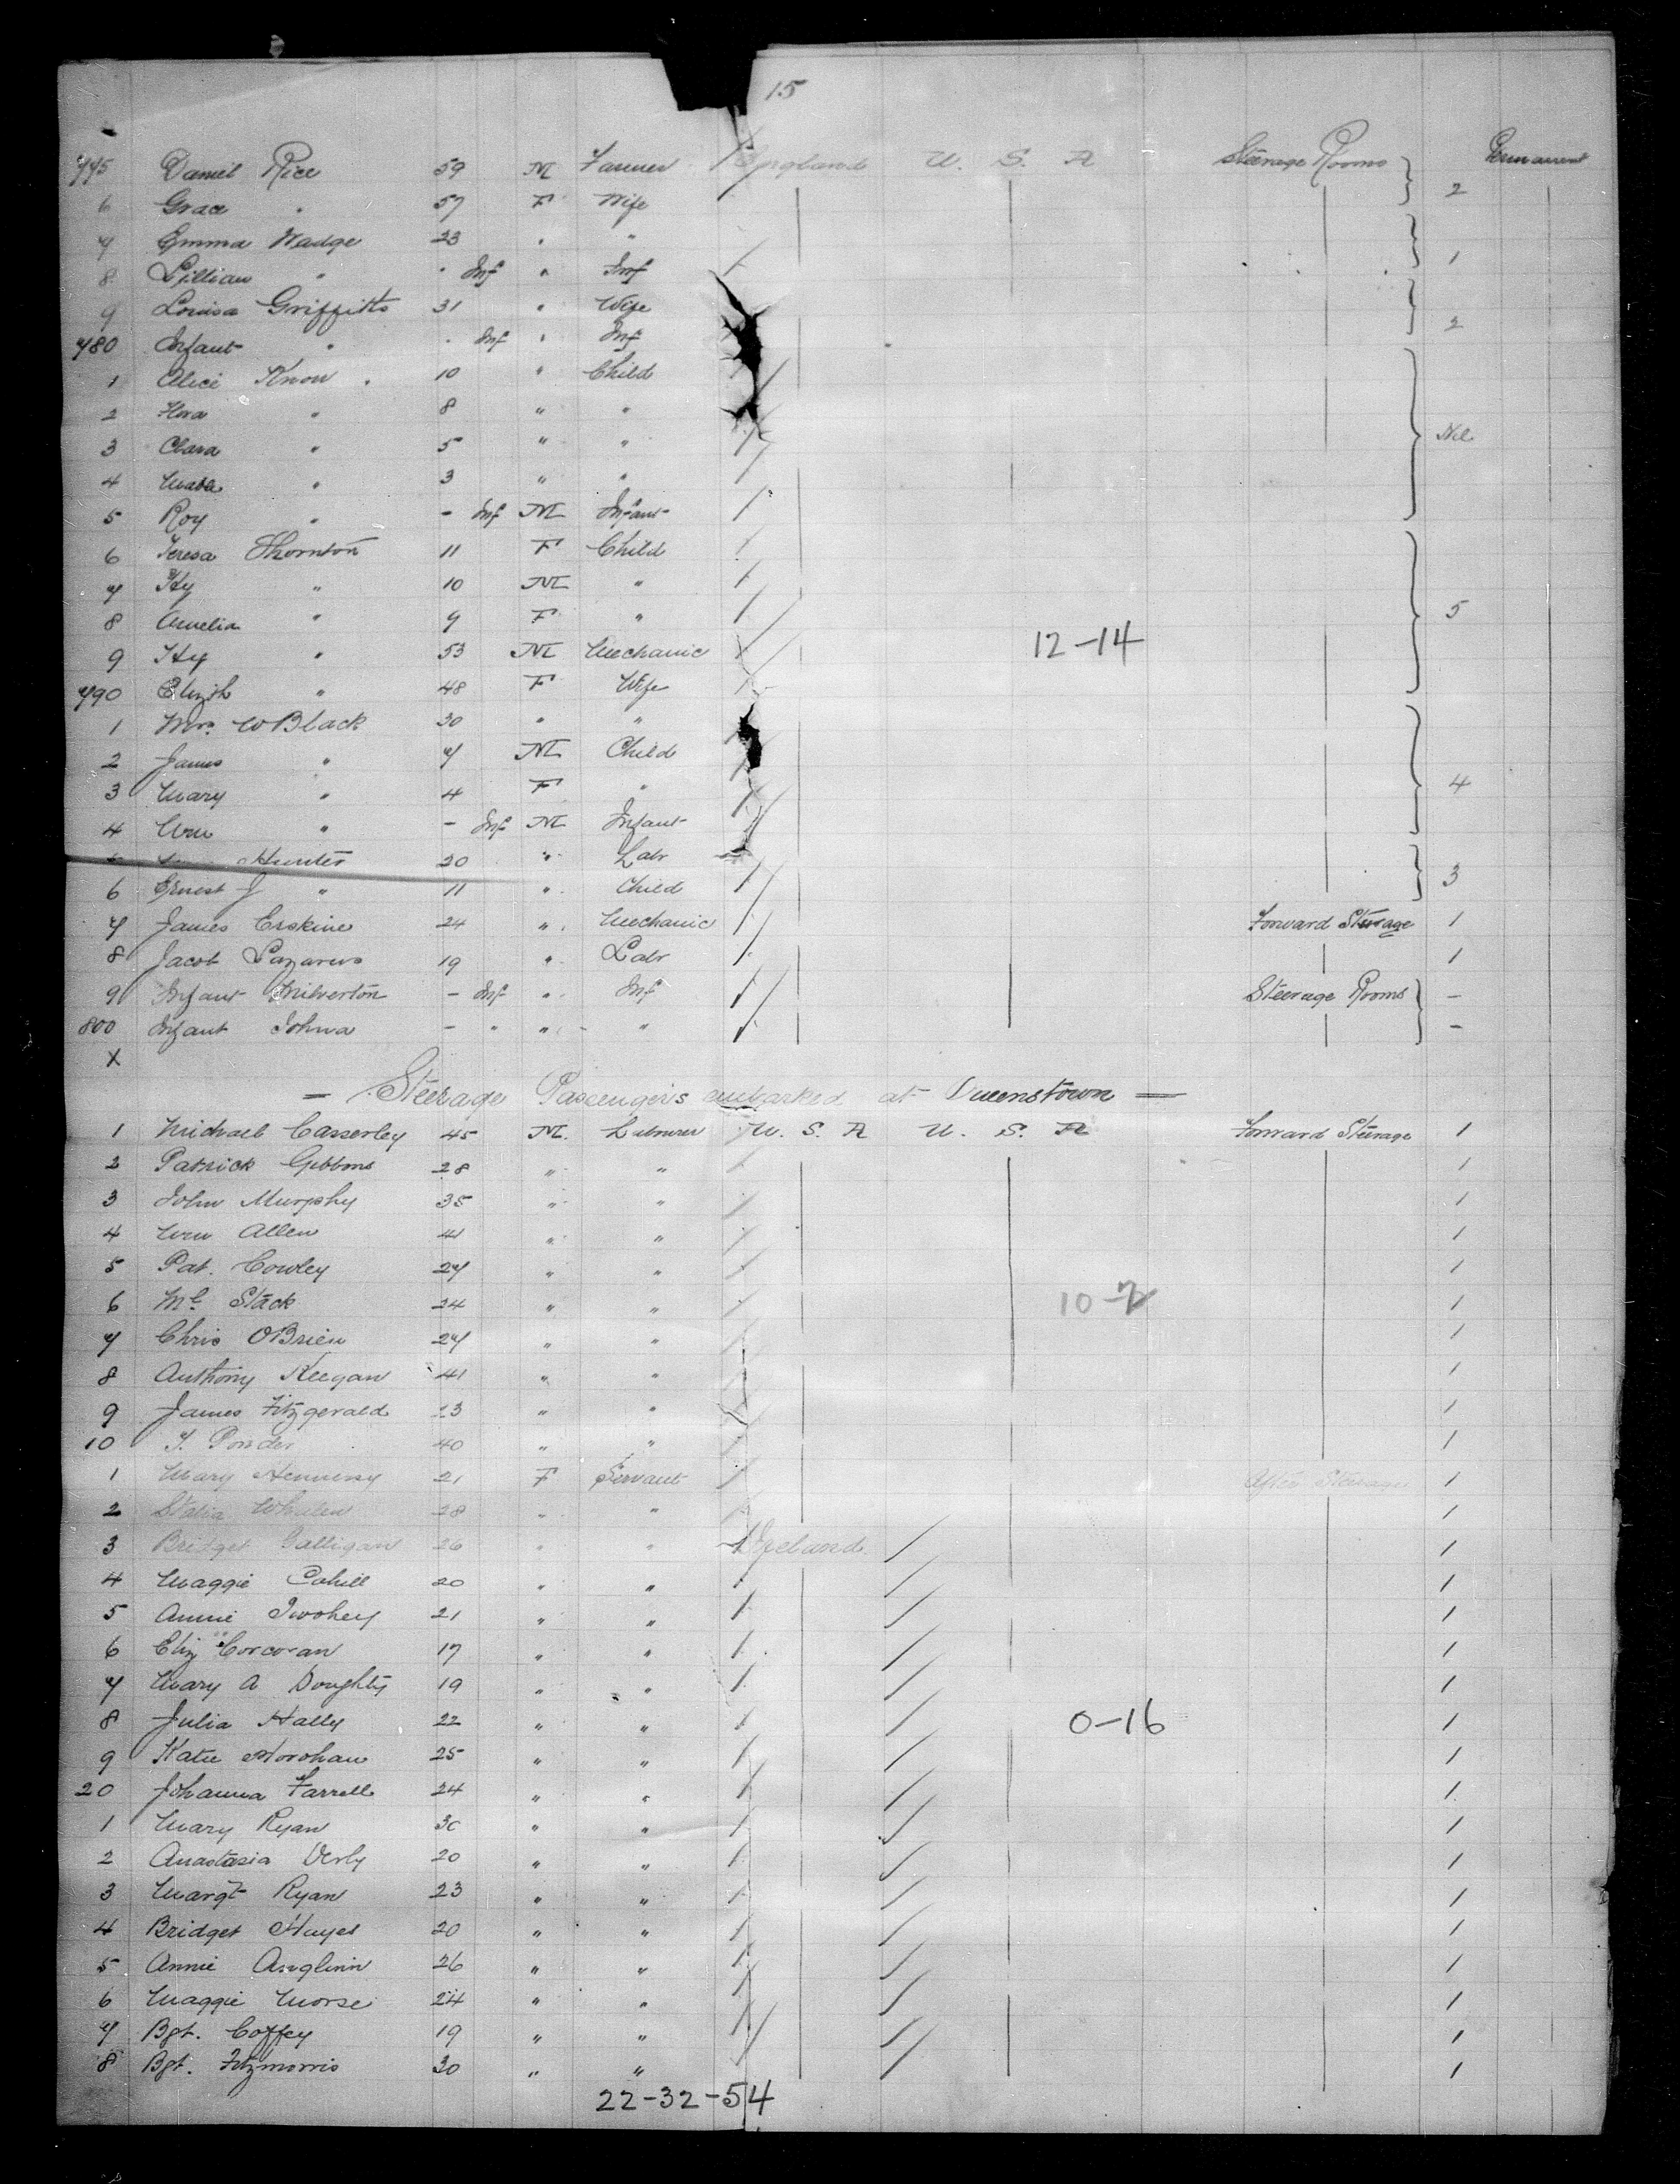 15
775 Daniel Rice 59 M Farmer England U. S. A Steerage Rooms 2 Permanent
6 Grace " 57 F Wife
7 Emma Wadge 23 " " 1
8 Lillian " - Inf " Inf
9 Louisa Griffiths 31 " Wife 2
780 Infant " - Inf " Inf
1 Alice Know 10 " Child
2 Flora " 8 " "
3 Clara " 5 " " Nil
4 " 3 " "
5 Roy " - Inf M Infant
6 Teresa Thornton 11 F Child
7 Hy " 10 M "
8 Amelia " 9 F " 5
9 Hy " 53 M Mechanic 12-14
790 Elizth " 48 F Wife
1 Mrs. W Black 30 " "
2 James " 7 M Child
3 Mary " 4 F " 4
4 Wm " - Inf M Infant
Hunter 20 " Labr 3
6 Ernest J " 11 " Child
7 James Erskine 24 " Mechanic Forward Steerage 1
8 Jacob Lazarus 19 " Labr 1
9 Infant Milverton - Inf " Inf Steerage Rooms -
800 Infant - " " " -
X
= Steerage Passengers embarked at Queenstown =
1 Michael Casserley 45 M. Labourer U. S. A U. S. A Forward Steerage 1
2 Patrick Gibbons 28 " " 1
3 John Murphy 35 " " 1
4 Wm Allen 41 " " 1
5 Pat. Cowley 27 " " 1
6 Ml. Stack 24 " " 10-2 1
7 Chris OBrien 27 " " 1
8 Anthony Keegan 41 " " 1
9 James Fitzgerald 23 " " 1
10 T. Ponder 40 " " 1
1 Mary Hennessy 21 F Servant After Steerage 1
2 Statia Whelen 28 " " 1
3 Bridget Galligan 26 " " Ireland 1
4 Maggie Cahill 20 " " 1
5 Annie Twohey 21 " " 1
6 Eliz Corcoran 17 " " 1
7 Mary A Doughty 19 " " 1
8 Julia Hally 22 " " 0-16 1
9 Katie Horohan 25 " " 1
20 Johanna Farrell 24 " " 1
1 Mary Ryan 30 " " 1
2 Anastasia 20 " " 1
3 Margt Ryan 23 " " 1
4 Bridget Hayes 20 " " 1
5 Annie Anglinn 26 " " 1
6 Maggie Morse 24 " " 1
7 Bgt. Coffey 19 " " 1
8 Bgt. Fitzmorris 30 " " 1
22-32-54